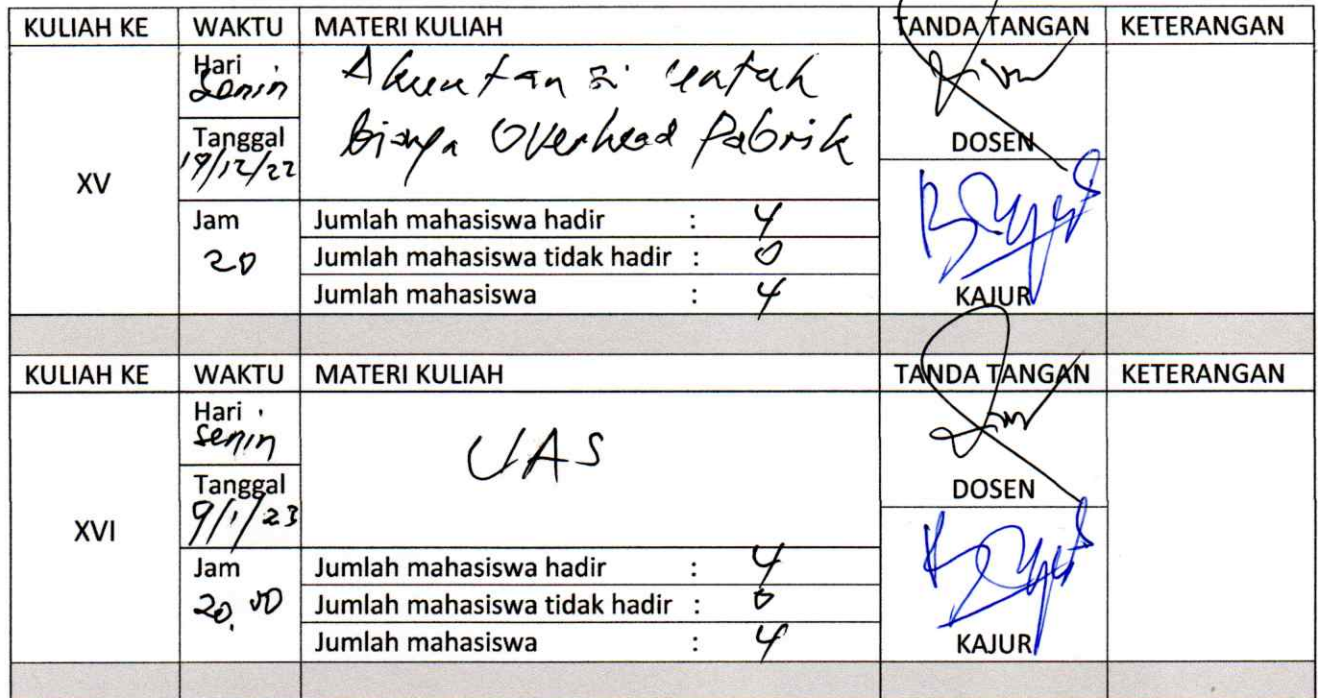 KULIAH KE WAKTU MATERI KULIAH TANDA TANGAN KETERANGAN
XV
Hari
Senin
Akuntansi untuk
biaya Overhead Pabrik
Tanggal
19/12/22
DOSEN
Jam
20
Jumlah mahasiswa hadir : 4
Jumlah mahasiswa tidak hadir : 0
Jumlah mahasiswa : 4
KAJUR
KULIAH KE WAKTU MATERI KULIAH TANDA TANGAN KETERANGAN
XVI
Hari
Senin
UAS
Tanggal
9/1/23
DOSEN
Jam
20.00
Jumlah mahasiswa hadir : 4
Jumlah mahasiswa tidak hadir : 0
Jumlah mahasiswa : 4
KAJUR